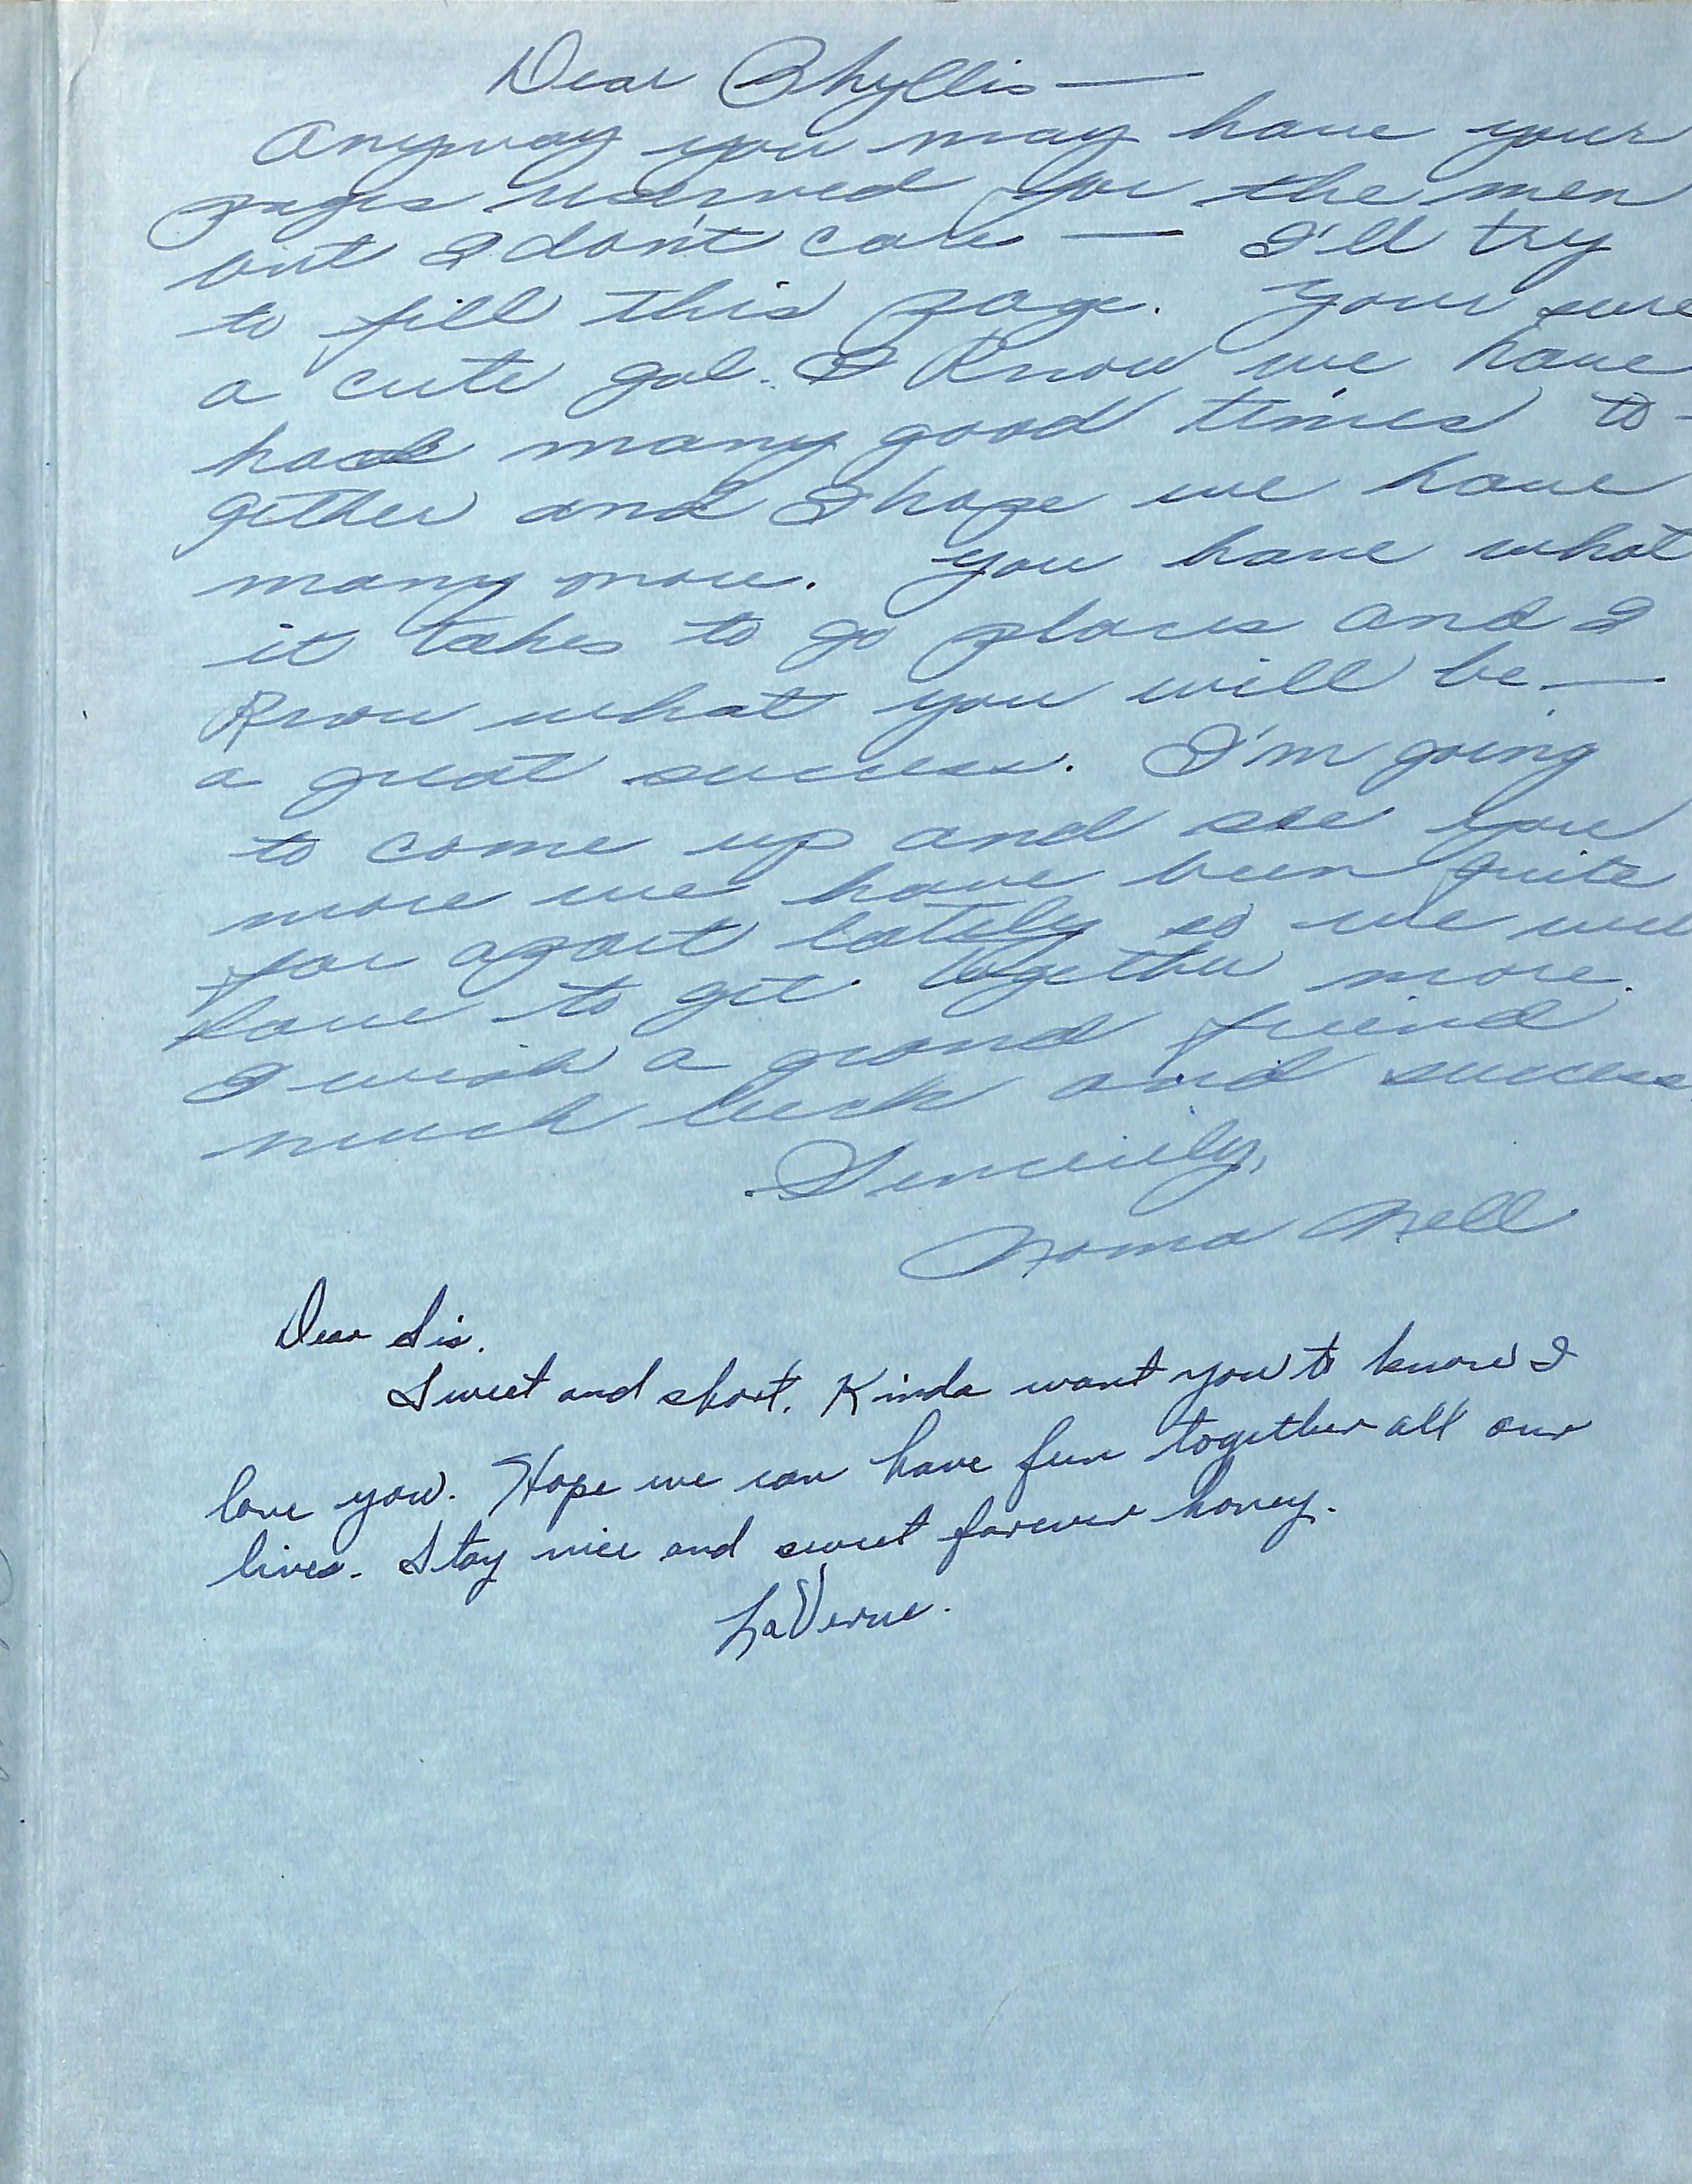 Dear Phyllis —
Anyway you may have your
pages reserved for the men
but I don't care — I'll try
to fill this page. Your sure
a cute gal. I know we have
had many good times to-
gether and I hope we have
many more. You have what
it takes to go places and I
know what you will be —
a great success. I'm going
to come up and see you
more we have been quite
far apart lately so we will
have to get together more.
I wish a grand friend
much luck and success
Sincerely,
Noma Nell
Dear Sis.
Sweet and short. Kinda want you to know I
love you. Hope we can have fun together all our
lives. Stay nice and sweet forever honey.
LaVerne.